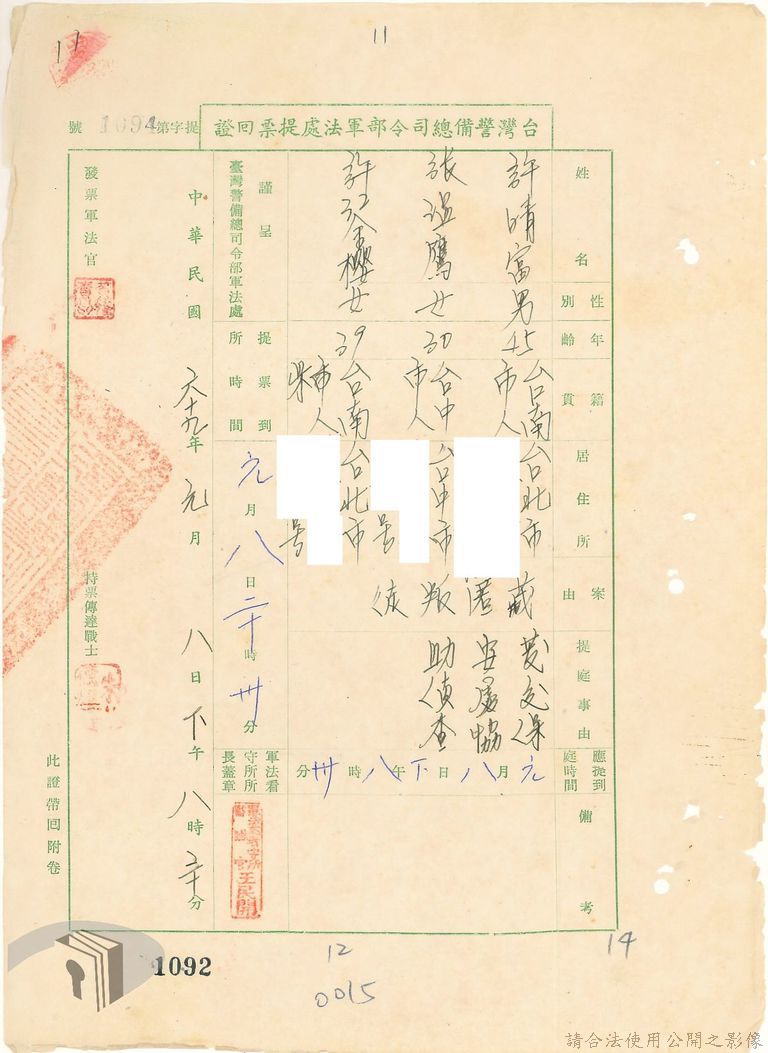 11
11
台灣警備總司令部軍法處提票回證
提字第1094號
姓名
許晴富
張溫鷹
許江金櫻
性別
男
女
女
年齡
45
30
39
籍貫
台南市人
台中市人
台南市人
居住所
台北市
台中市 号
台北市 号
案由
藏匿叛徒
提庭事由
發交保安處協助偵查
應提到庭時間
元月八日下午八時卅分
備考
謹呈
臺灣警備總司令部軍法處
提票到所時間
元月八日二十時卅分
軍法看守所所長蓋章
王民開
中華民國六十九年元月八日下午八時二十分
發票軍法官
持票傳達戰士
此證帶回附卷
1092
12
0015
14
請合法使用公開之影像